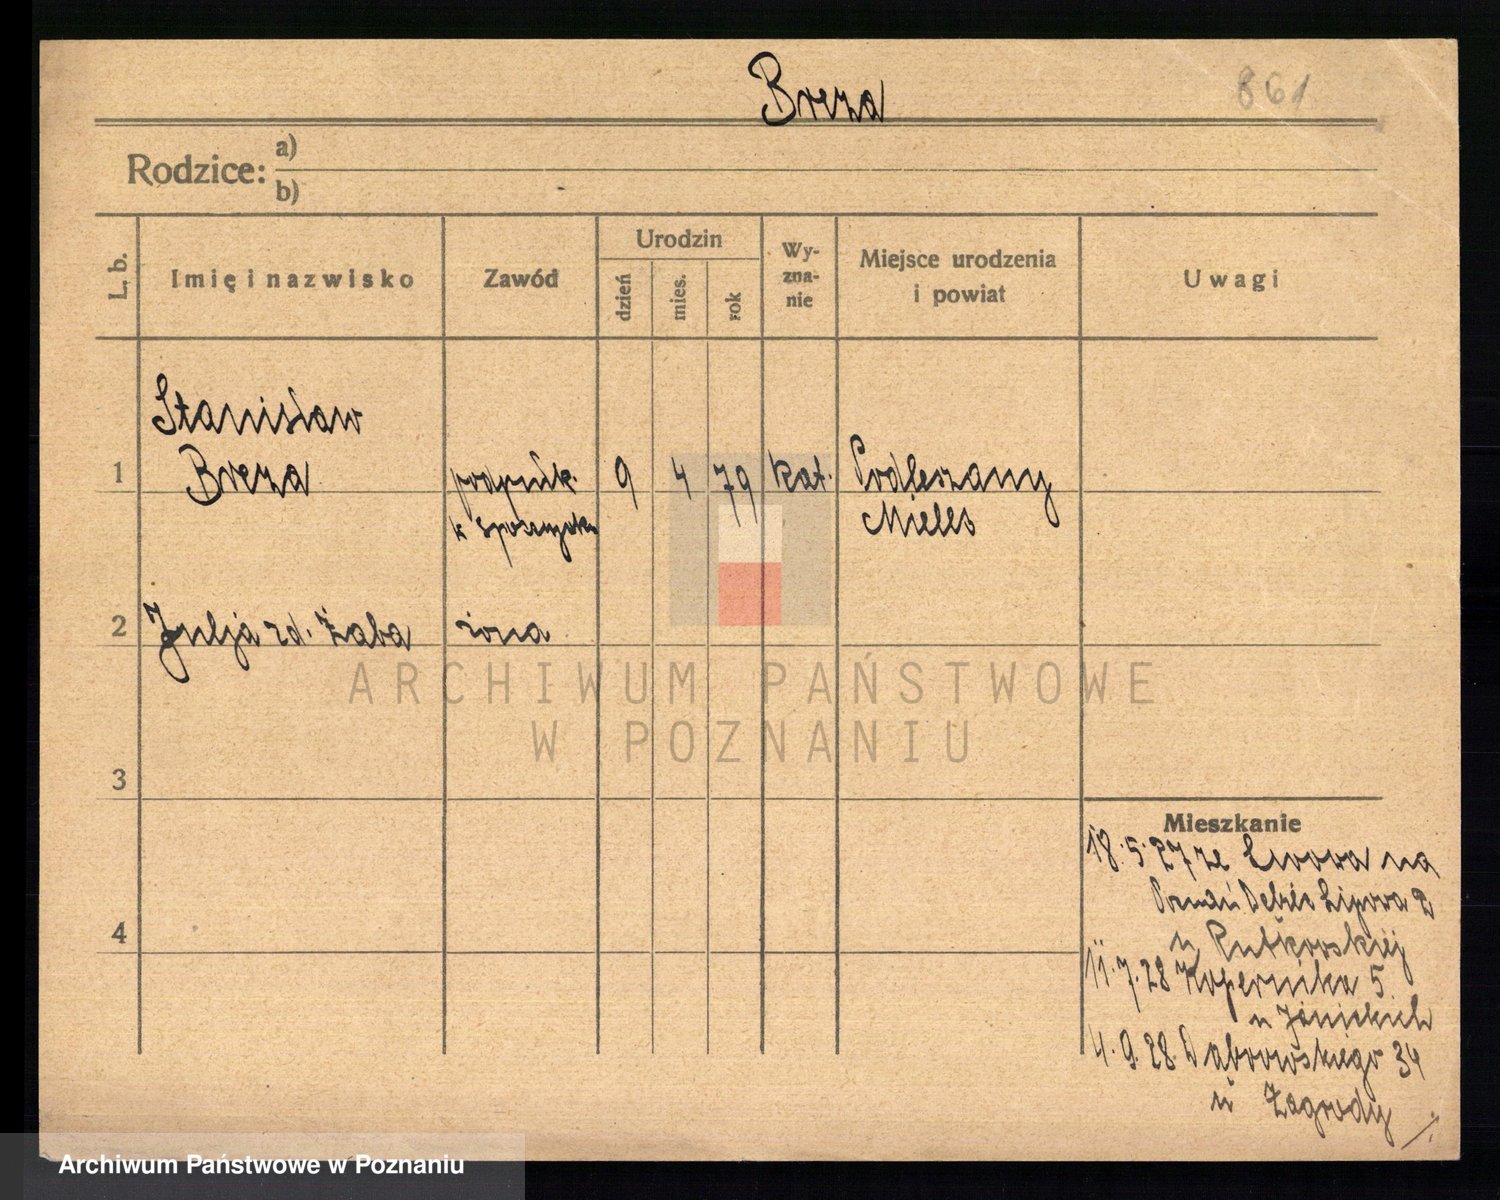 Breza
861
Rodzice: a)
b)
L. b.
Imię i nazwisko
Zawód
Urodzin
dzień
mies.
rok
Wy-
zna-
nie
Miejsce urodzenia
i powiat
Uwagi
Stanisław
1 Breza podpułk. 9 4 79 kat. Podleszany
Mielec
2 Julja zd. Żaba żona
3
4
Mieszkanie
18.5.27 ze Lwowa na
Poznań Dębiec Lipowa 2
u Rutkowskiej
11.7.28 Kopernika 5
u Janickich
4.9.28 Dąbrowskiego 34
u Zagrody
ARCHIWUM PAŃSTWOWE
W POZNANIU
Archiwum Państwowe w Poznaniu